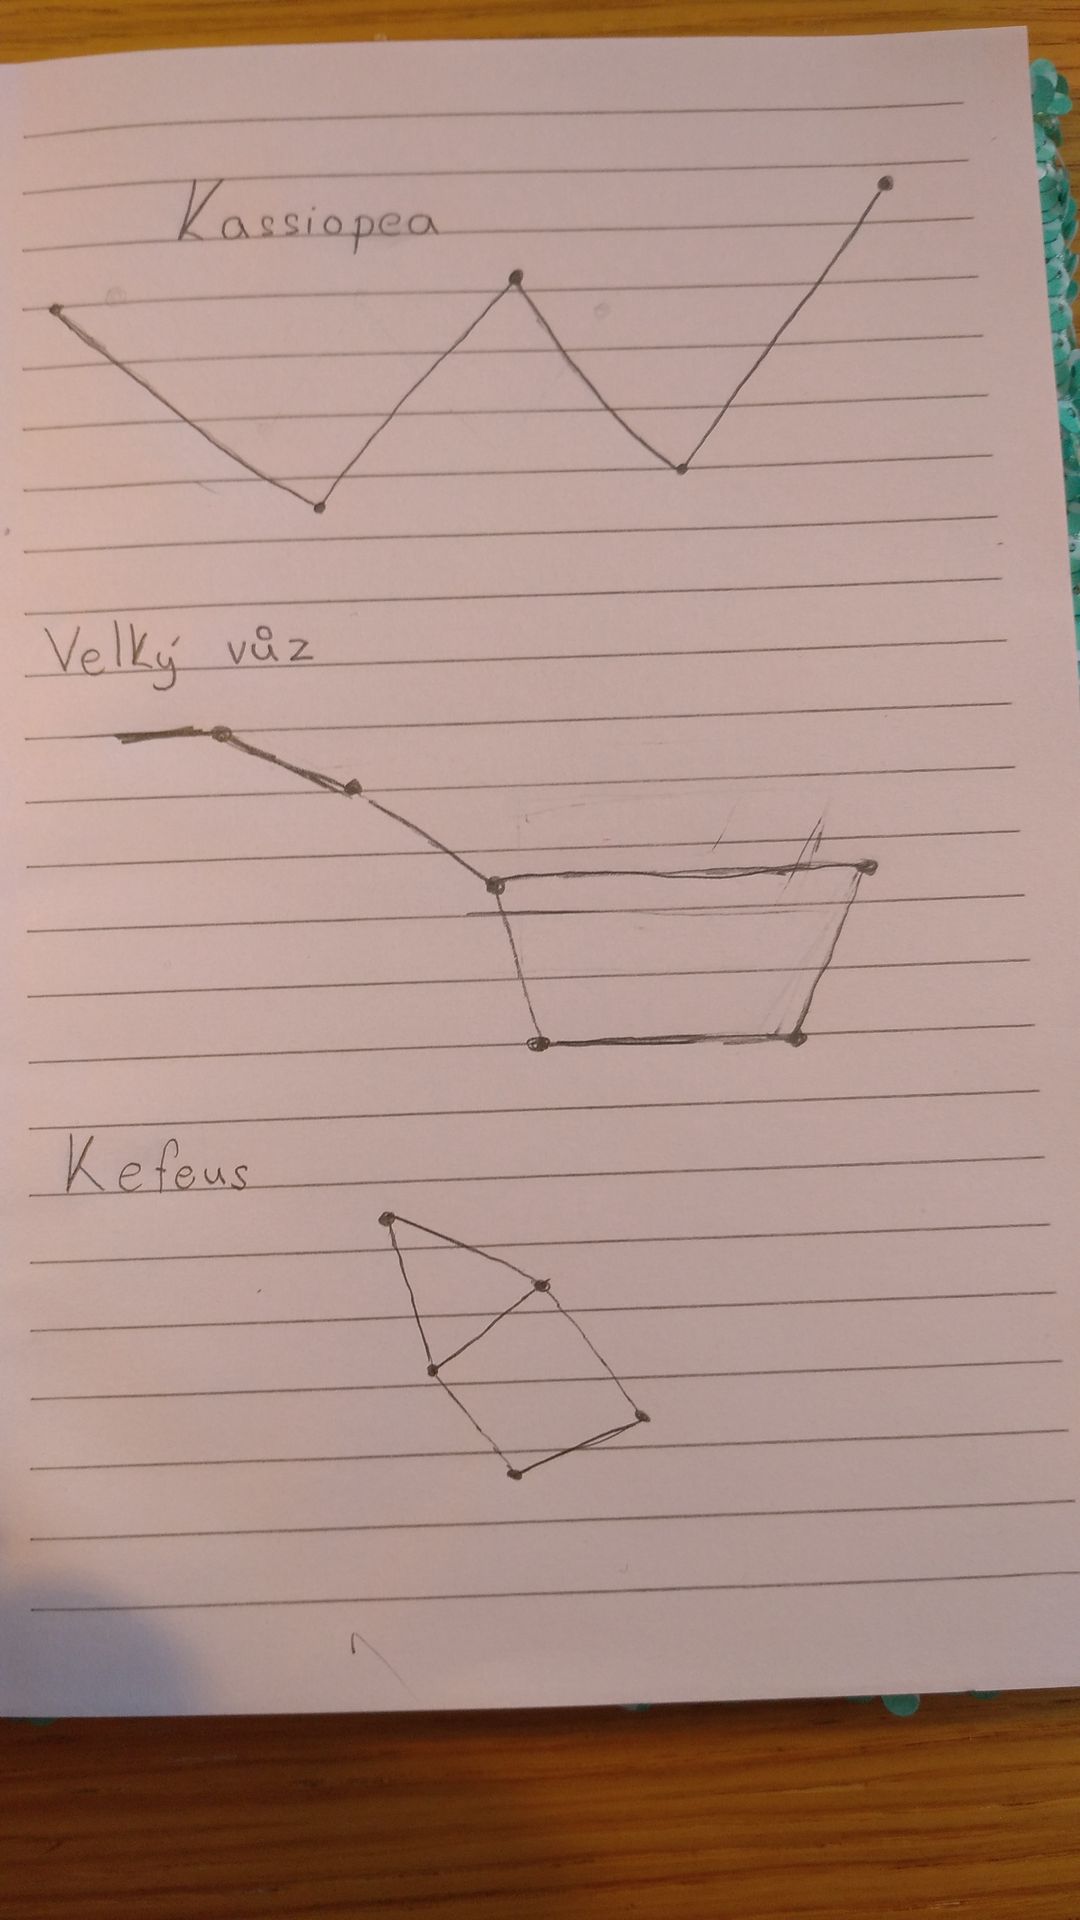 Kassiopea
Velký vůz
Kefeus